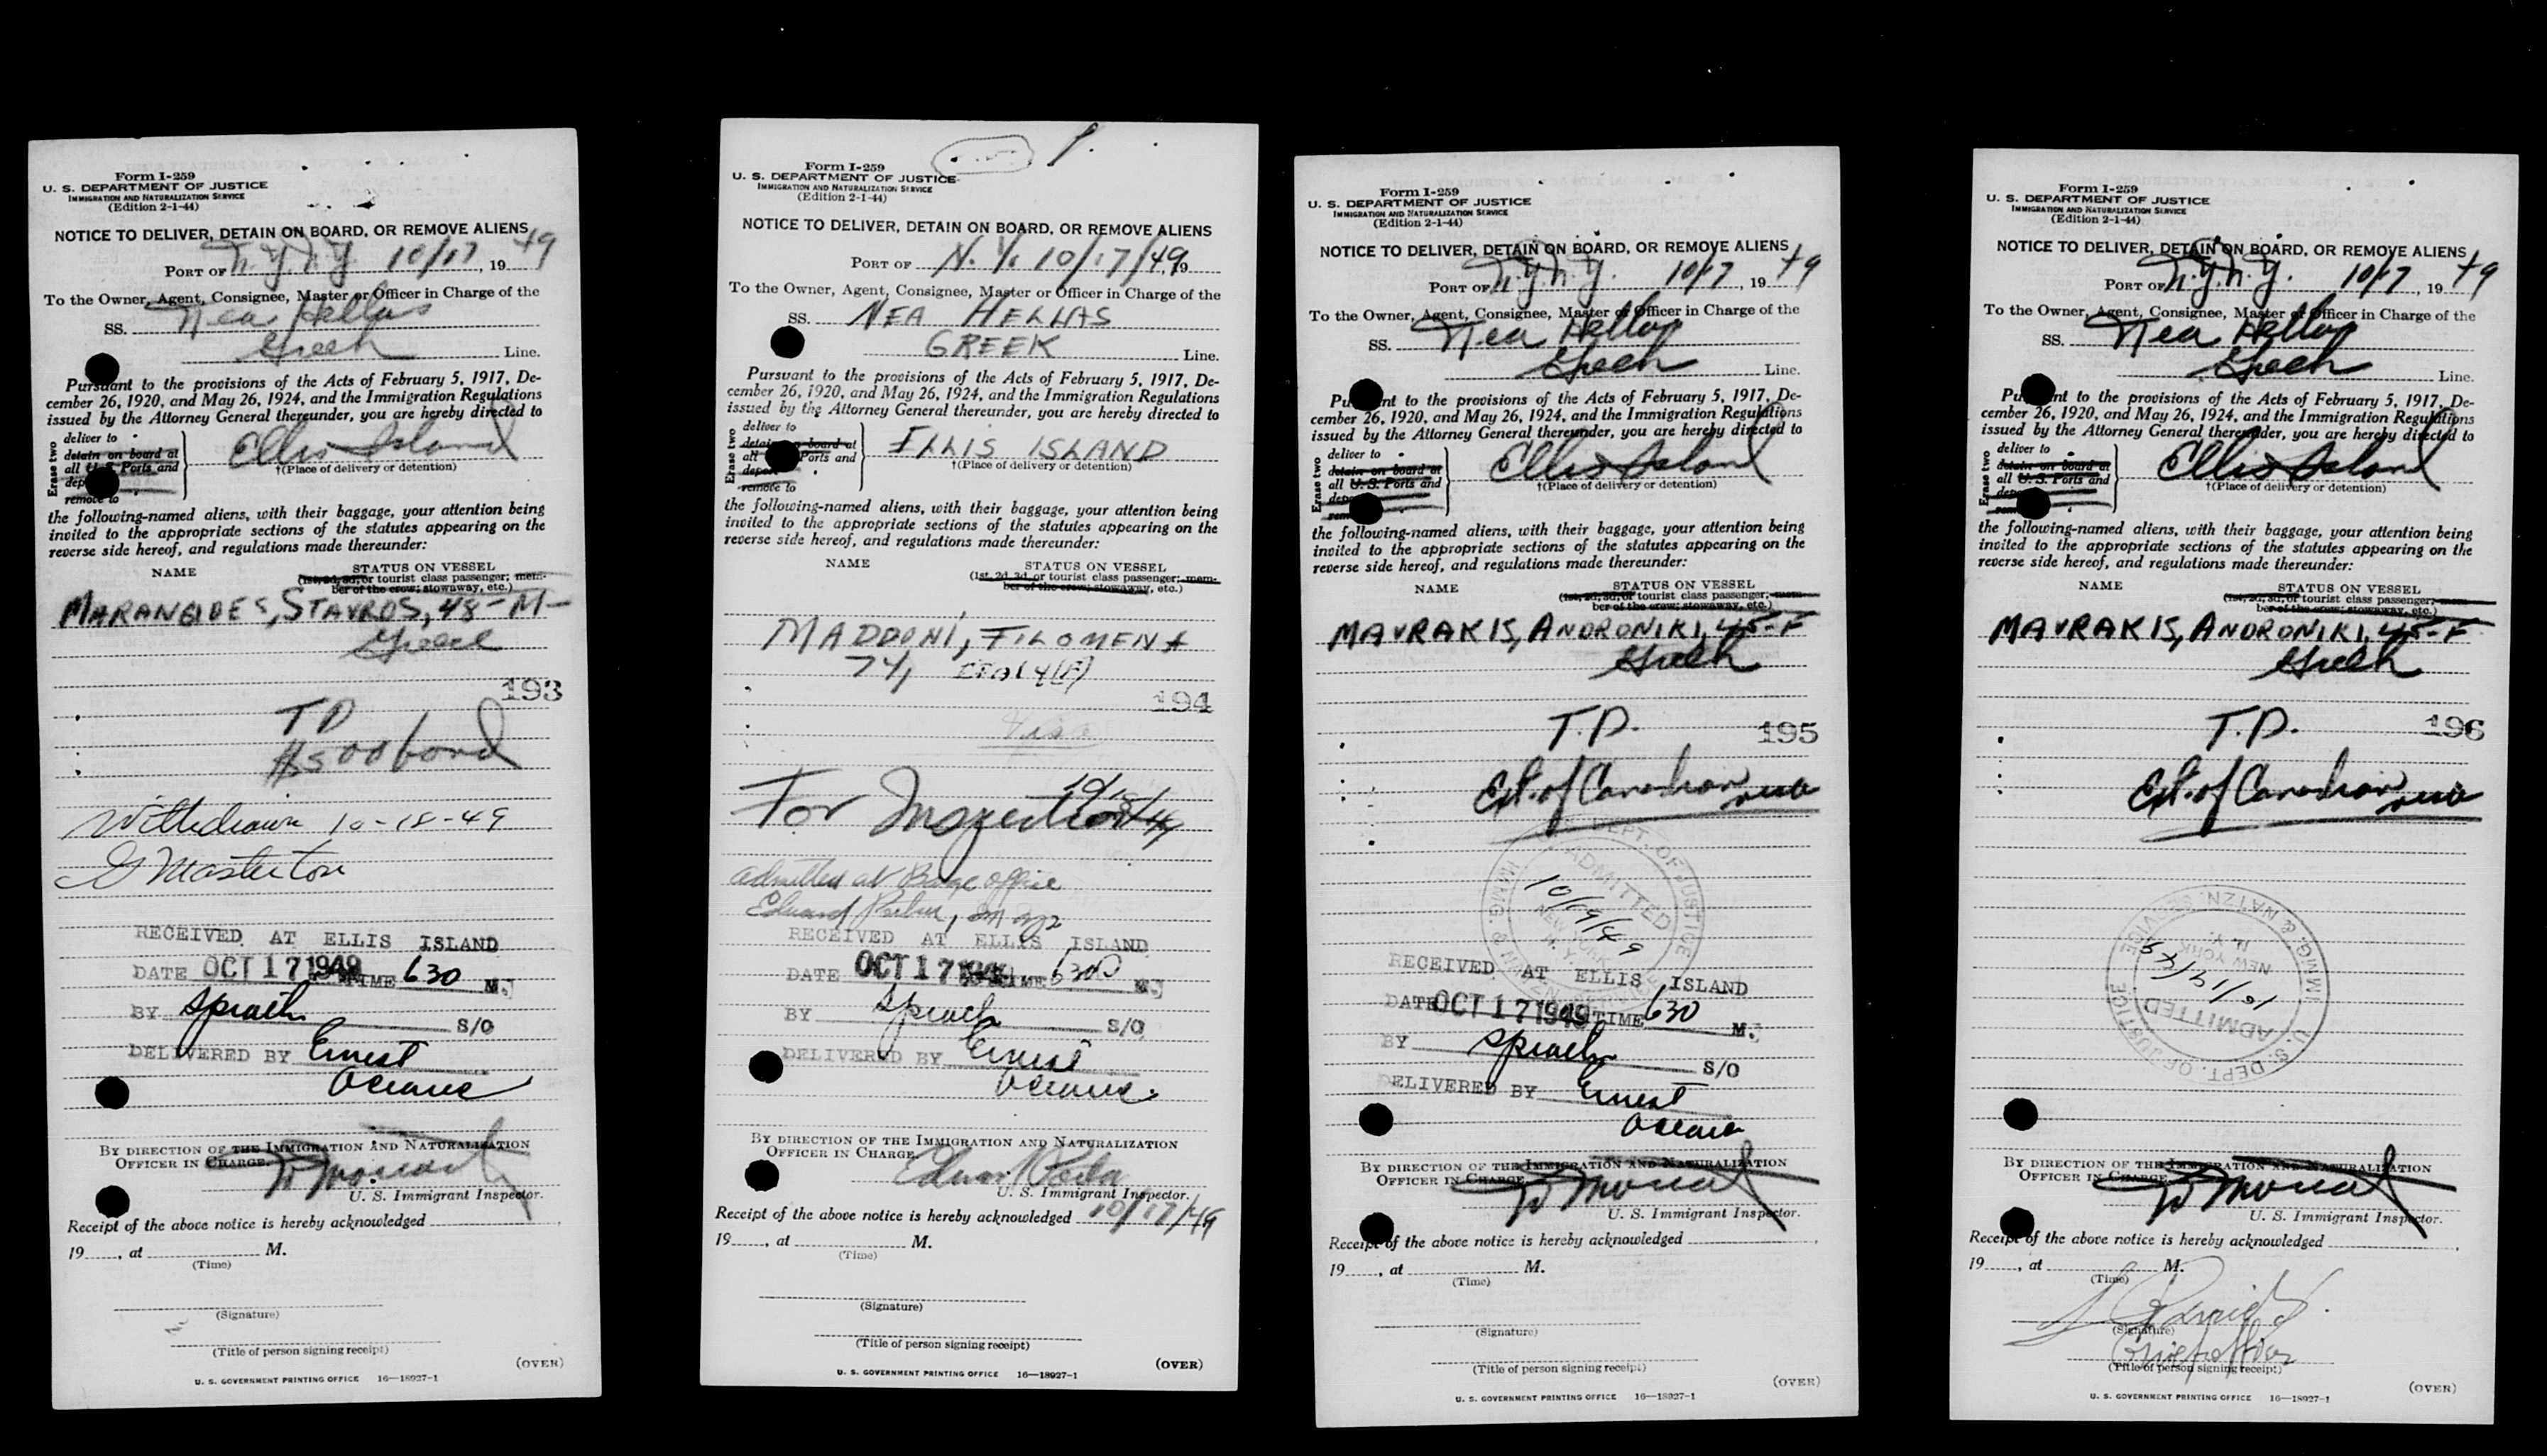 Form I-259
U. S. DEPARTMENT OF JUSTICE
IMMIGRATION AND NATURALIZATION SERVICE
(Edition 2-1-44)
NOTICE TO DELIVER, DETAIN ON BOARD, OR REMOVE ALIENS
PORT OF N.Y.N.Y. 10/17, 1949
To the Owner, Agent, Consignee, Master or Officer in Charge of the
SS. Nea Hellas
Greek Line.
Pursuant to the provisions of the Acts of February 5, 1917, De-
cember 26, 1920, and May 26, 1924, and the Immigration Regulations
issued by the Attorney General thereunder, you are hereby directed to
Erase two
deliver to
detain on board at
all U. S. Ports and
remove to
Ellis Island
†(Place of delivery or detention)
the following-named aliens, with their baggage, your attention being
invited to the appropriate sections of the statutes appearing on the
reverse side hereof, and regulations made thereunder:
NAME
STATUS ON VESSEL
(1st, 2d, 3d, or tourist class passenger; mem-
ber of the crew; stowaway, etc.)
MARANGIDES, STAVROS, 48-M-
Greece
193
TD
$500 bond
Withdrawn 10-18-49
G Masterton
RECEIVED AT ELLIS ISLAND
DATE OCT 17 1949 TIME 630 M.
BY S/O
DELIVERED BY Ernest
Oceanic
BY DIRECTION OF THE IMMIGRATION AND NATURALIZATION
OFFICER IN CHARGE.
U. S. Immigrant Inspector.
Receipt of the above notice is hereby acknowledged
19, at M.
(Time)
(Signature)
(Title of person signing receipt)
(OVER)
U. S. GOVERNMENT PRINTING OFFICE 16—18927-1
Form I-259
U. S. DEPARTMENT OF JUSTICE
IMMIGRATION AND NATURALIZATION SERVICE
(Edition 2-1-44)
NOTICE TO DELIVER, DETAIN ON BOARD, OR REMOVE ALIENS
PORT OF N.Y. 10/17/49, 19
To the Owner, Agent, Consignee, Master or Officer in Charge of the
SS. NEA HELLAS
GREEK Line.
Pursuant to the provisions of the Acts of February 5, 1917, De-
cember 26, 1920, and May 26, 1924, and the Immigration Regulations
issued by the Attorney General thereunder, you are hereby directed to
Erase two
deliver to
detain on board at
all Ports and
remove to
ELLIS ISLAND
†(Place of delivery or detention)
the following-named aliens, with their baggage, your attention being
invited to the appropriate sections of the statutes appearing on the
reverse side hereof, and regulations made thereunder:
NAME
STATUS ON VESSEL
(1st, 2d, 3d, or tourist class passenger; mem-
ber of the crew; stowaway, etc.)
MADDONI, FILOMENA
74, ITALY (F)
194
Visa
For Inspection 10/18/49
Admitted at Barge office
RECEIVED AT ELLIS ISLAND
DATE OCT 17 1949 TIME 630 M.
BY S/O
DELIVERED BY Ernest
Oceanic
BY DIRECTION OF THE IMMIGRATION AND NATURALIZATION
OFFICER IN CHARGE.
U. S. Immigrant Inspector.
Receipt of the above notice is hereby acknowledged 10/17/49
19, at M.
(Time)
(Signature)
(Title of person signing receipt)
(OVER)
U. S. GOVERNMENT PRINTING OFFICE 16—18927-1
Form I-259
U. S. DEPARTMENT OF JUSTICE
IMMIGRATION AND NATURALIZATION SERVICE
(Edition 2-1-44)
NOTICE TO DELIVER, DETAIN ON BOARD, OR REMOVE ALIENS
PORT OF N.Y.N.Y. 10/17, 1949
To the Owner, Agent, Consignee, Master or Officer in Charge of the
SS. Nea Hellas
Greek Line.
Pursuant to the provisions of the Acts of February 5, 1917, De-
cember 26, 1920, and May 26, 1924, and the Immigration Regulations
issued by the Attorney General thereunder, you are hereby directed to
Erase two
deliver to
detain on board at
all U. S. Ports and
Ellis Island
†(Place of delivery or detention)
the following-named aliens, with their baggage, your attention being
invited to the appropriate sections of the statutes appearing on the
reverse side hereof, and regulations made thereunder:
NAME
STATUS ON VESSEL
(1st, 2d, 3d, or tourist class passenger; mem-
ber of the crew; stowaway, etc.)
MAVRAKIS, ANDRONIKI, 45-F
Greek
T.D.
195
Ext. of Canadian visa
U. S. DEPT. OF JUSTICE
IMMG. & NATZN. SERVICE
ADMITTED
10/19/49
NEW YORK
N. Y.
RECEIVED AT ELLIS ISLAND
DATE OCT 17 1949 TIME 630 M.
BY S/O
DELIVERED BY Ernest
Oceanic
BY DIRECTION OF THE IMMIGRATION AND NATURALIZATION
OFFICER IN CHARGE.
U. S. Immigrant Inspector.
Receipt of the above notice is hereby acknowledged
19, at M.
(Time)
(Signature)
(Title of person signing receipt)
(OVER)
U. S. GOVERNMENT PRINTING OFFICE 16—18927-1
Form I-259
U. S. DEPARTMENT OF JUSTICE
IMMIGRATION AND NATURALIZATION SERVICE
(Edition 2-1-44)
NOTICE TO DELIVER, DETAIN ON BOARD, OR REMOVE ALIENS
PORT OF N.Y.N.Y. 10/17, 1949
To the Owner, Agent, Consignee, Master or Officer in Charge of the
SS. Nea Hellas
Greek Line.
Pursuant to the provisions of the Acts of February 5, 1917, De-
cember 26, 1920, and May 26, 1924, and the Immigration Regulations
issued by the Attorney General thereunder, you are hereby directed to
Erase two
deliver to
detain on board at
all U. S. Ports and
Ellis Island
†(Place of delivery or detention)
the following-named aliens, with their baggage, your attention being
invited to the appropriate sections of the statutes appearing on the
reverse side hereof, and regulations made thereunder:
NAME
STATUS ON VESSEL
(1st, 2d, 3d, or tourist class passenger; mem-
ber of the crew; stowaway, etc.)
MAVRAKIS, ANDRONIKI, 45-F
Greek
T.D.
196
Ext. of Canadian visa
U. S. DEPT. OF JUSTICE
IMMG. & NATZN. SERVICE
ADMITTED
10/19/49
NEW YORK
N. Y.
BY DIRECTION OF THE IMMIGRATION AND NATURALIZATION
OFFICER IN CHARGE.
U. S. Immigrant Inspector.
Receipt of the above notice is hereby acknowledged
19, at M.
(Time)
(Signature)
(Title of person signing receipt)
(OVER)
U. S. GOVERNMENT PRINTING OFFICE 16—18927-1